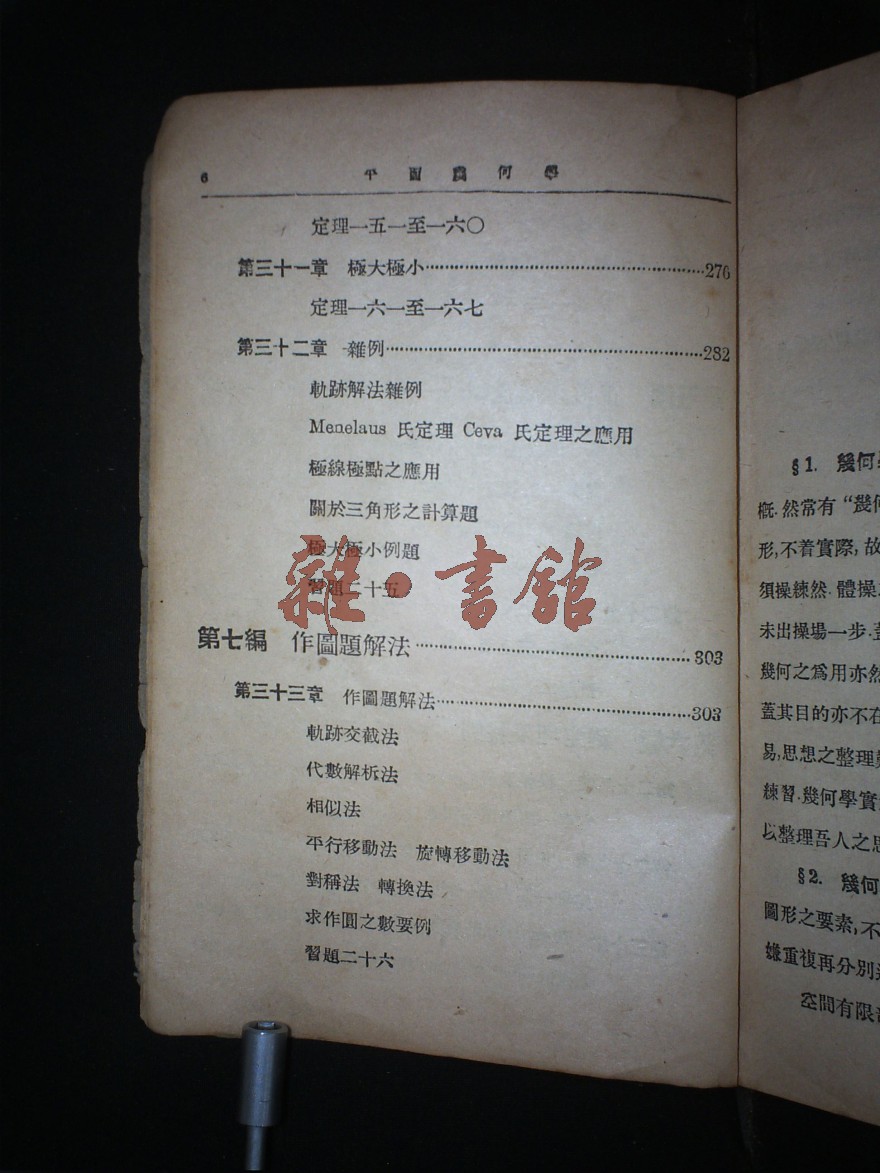 6 平面幾何學
定理一五一至一六〇
第三十一章 極大極小……276
定理一六一至一六七
第三十二章 雜例……282
軌跡解法雜例
Menelaus 氏定理 Ceva 氏定理之應用
極線極點之應用
關於三角形之計算題
極大極小例題
習題二十五
雜·書館
第七編 作圖題解法……303
第三十三章 作圖題解法……303
軌跡交截法
代數解析法
相似法
平行移動法 旋轉移動法
對稱法 轉換法
求作圓之數要例
習題二十六
§1. 幾何
概.然常有“幾何
形,不着實際,故
須操練然.體操
未出操場一步.
幾何之爲用亦然
蓋其目的亦不在
易,思想之整理
練習.幾何學實
以整理吾人之思
§2. 幾何
圖形之要素,不
嫌重複再分別
空間有限